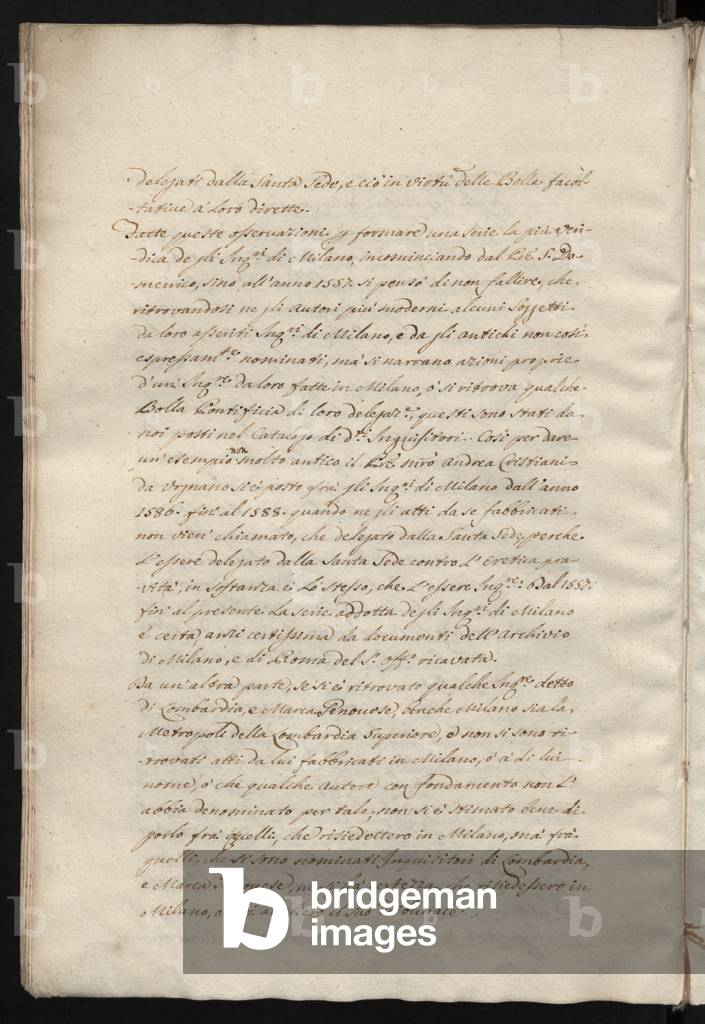 delegati dalla Santa Sede, e ciò in virtù delle Bolle facol-
-tative a' loro dirette.
Fatte queste osservazioni, p formare una serie la più veri-
dica de gli Ing.ri di Milano, incominciando dal P͞re S. Do-
menico, sino all'anno 1557. si pensò di non fallire, che
ritrovandosi ne gli Autori più moderni alcuni Soggetti
da loro asseriti Ing.ri di Milano, e da gli antichi non così
espressam.te nominati, mà si narrano azioni proprie
d'un' Ing.re da loro fatte in Milano, ò si ritrova qualche
Bolla Pontificia di loro delegaz.e, questi sono stati da
noi posti nel Catalogo di d.ti Inquisitori. Così per dare
un' esempio non molto antico il P͞re m͞ro Andrea Cristiani
da Vrgnano si è posto frà gli Ing.ri di Milano dall'anno
1586. fin' al 1588. quando ne gli atti da se fabbricati
non vien' chiamato, che delegato dalla Santa Sede, perche
L'essere delegato dalla Santa Sede contro L'Eretica pra-
vità, in sostanza è Lo stesso, che L'essere Ing.re. Dal 1557.
fin' al presente La serie addotta degli Ing.ri di Milano
è certa, anzi certissima da documenti dell'Archivio
di Milano, e di Roma del S. Off.o ricavata.
Da un'altra parte, se si è ritrovato qualche Ing.re detto
di Lombardia, e Marca Genovese, benche Milano sia la
Metropoli della Lombardia Superiore, e non si sono ri-
-trovati atti da lui fabbricati in Milano, ò à di lui
nome, ò che qualche Autore con fondamento non L'
abbia denominato per tale, non si è stimato bene di
porlo frà quelli, che risiedettero in Milano, mà frà
quelli, che si sono nominati Inquisitori di Lombardia,
e Marca Genovese, che risiedessero in
Milano, il suo
bridgeman
images